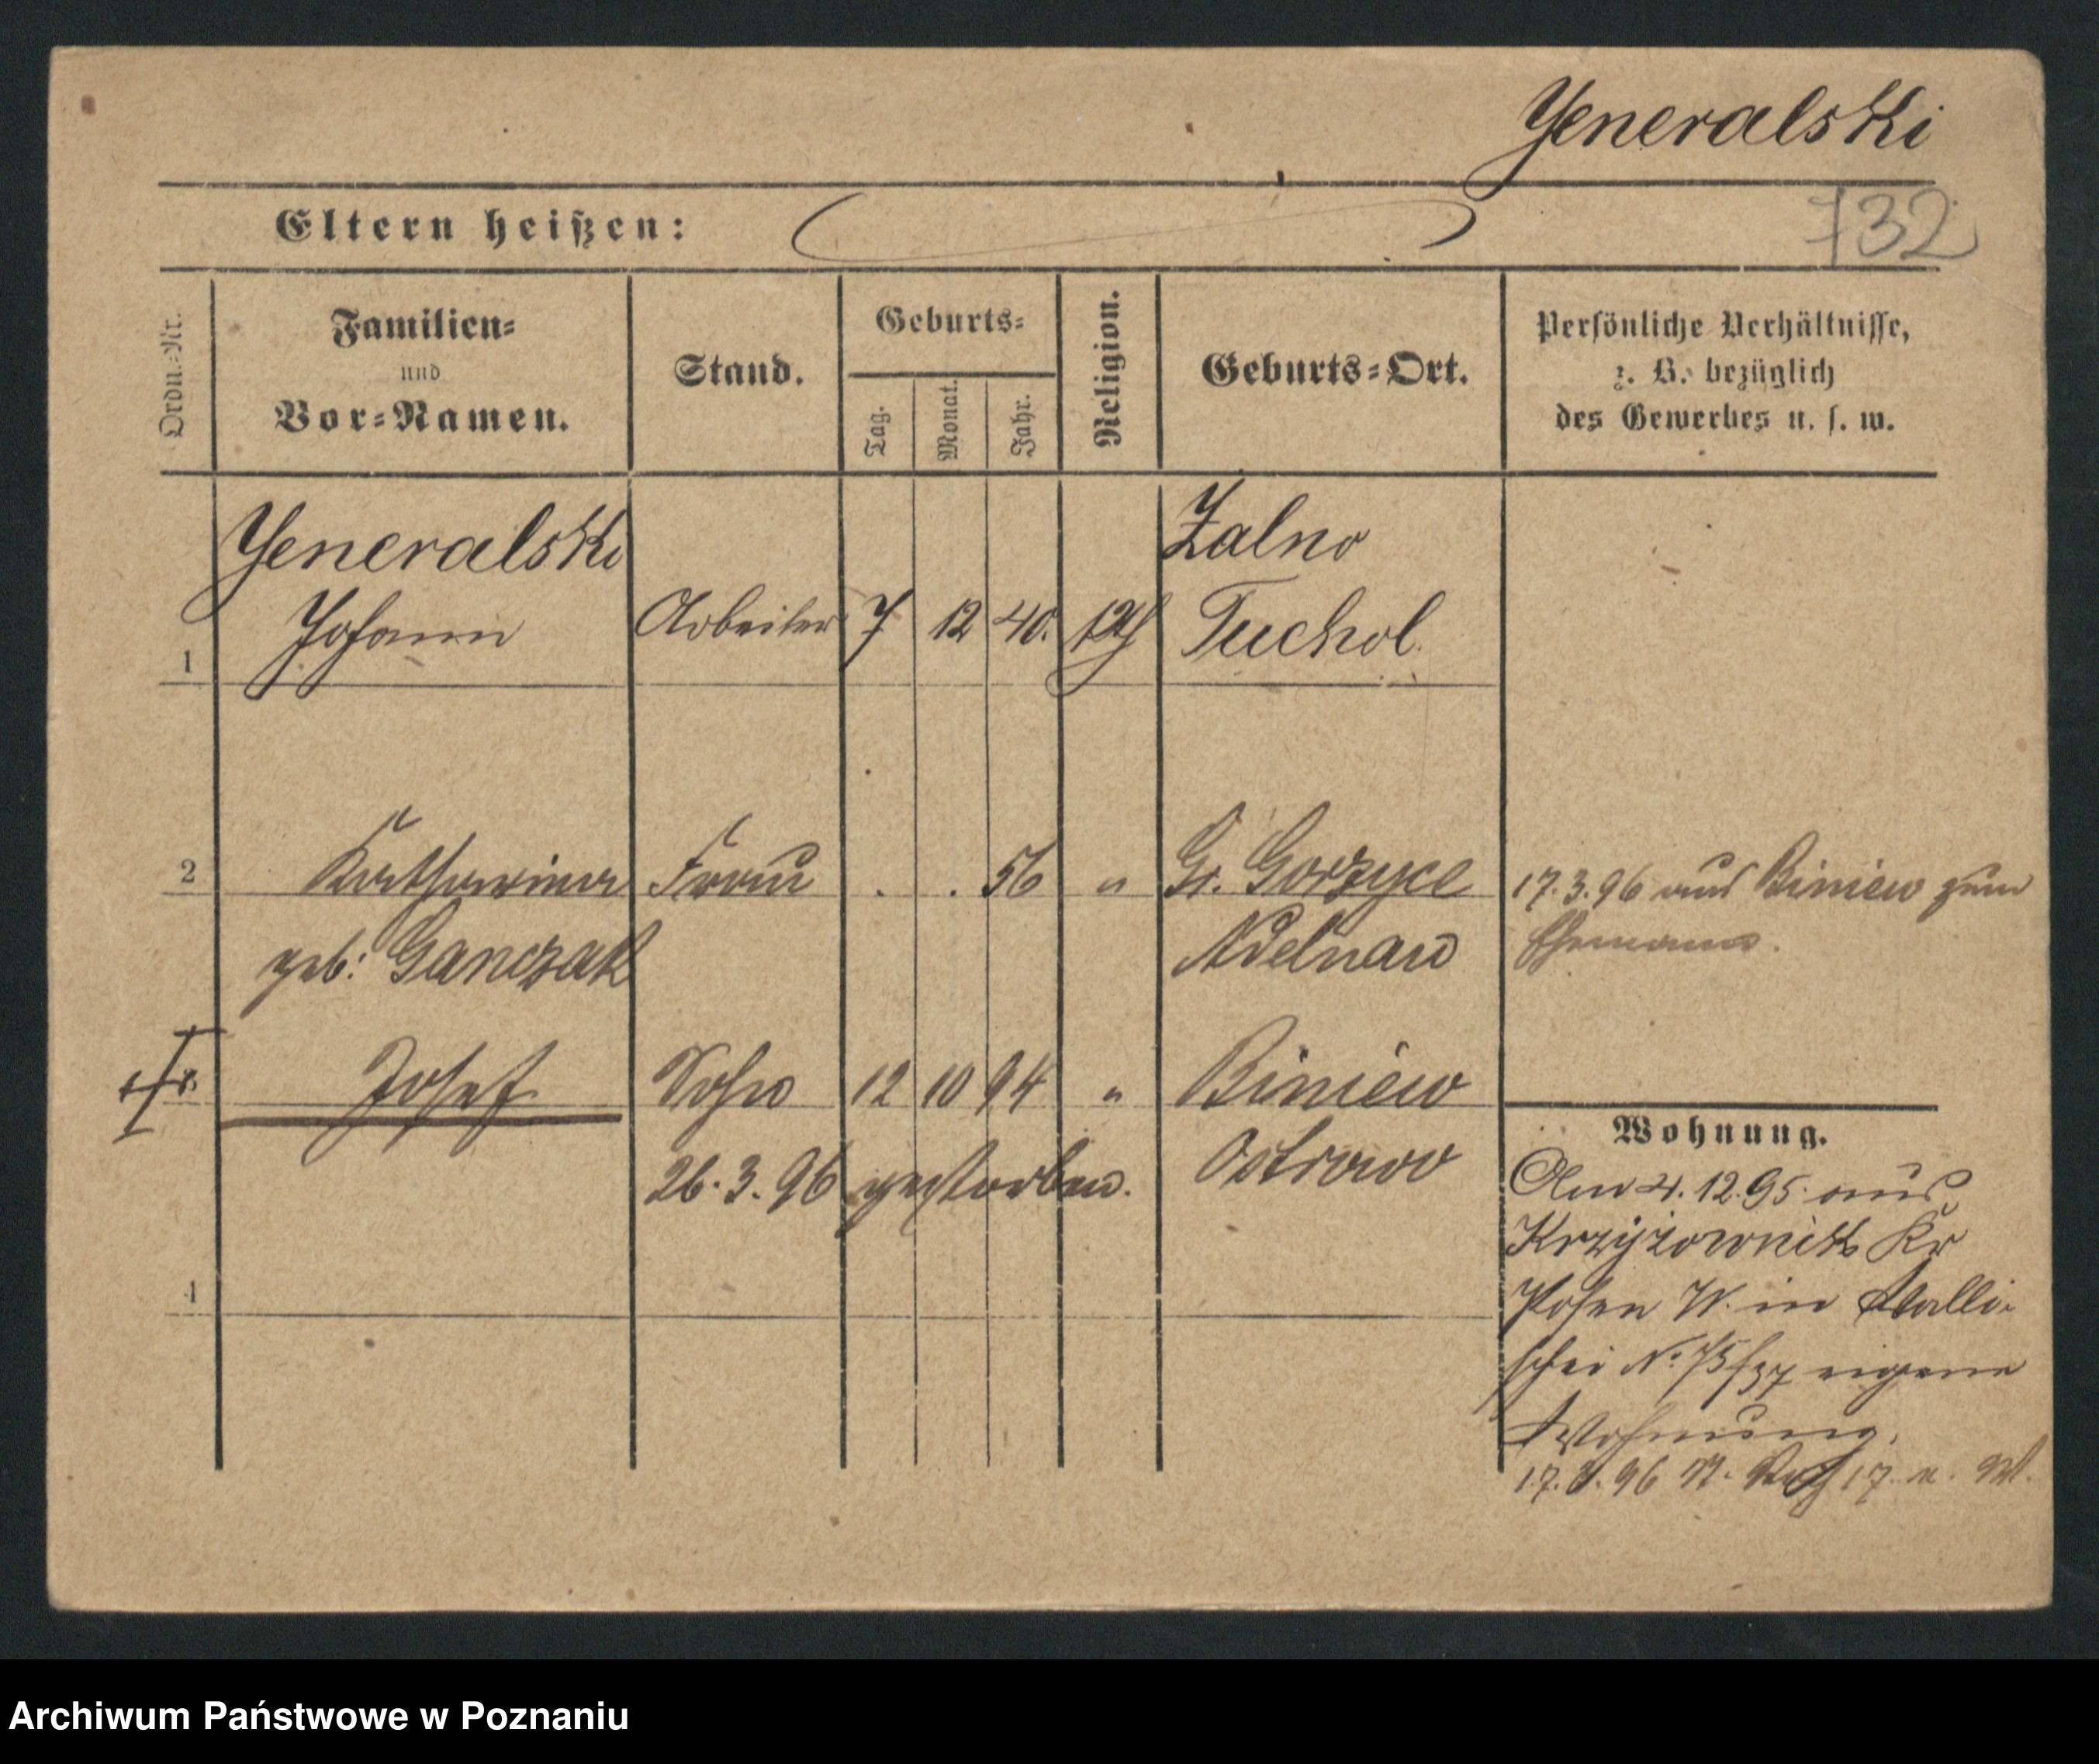 Jeneralski
Eltern heißen:
132
Ordn.-Nr.
Familien-
und
Vor-Namen.
Stand.
Geburts-
Tag.
Monat.
Jahr.
Religion.
Geburts-Ort.
Persönliche Verhältnisse,
z. B. bezüglich
des Gewerbes u. s. w.
Jeneralski
Zalno
1 Johann Arbeiter 7 12 40. Tuchol
2 Katharina Frau . . 56 " Gr. Gorzyce
geb: Ganczak Adelnau
17.3.96 aus Biniew zum
Ehemann.
Josef Sohn 12 10 94 " Biniew
26.3.96 gestorben. Ostrowo
4
Wohnung.
Am 4.12.95. aus
Krzyżownik Kr
Posen W. in Walli-
schei No 75/37 eigene
Wohnung.
96 17
Archiwum Państwowe w Poznaniu